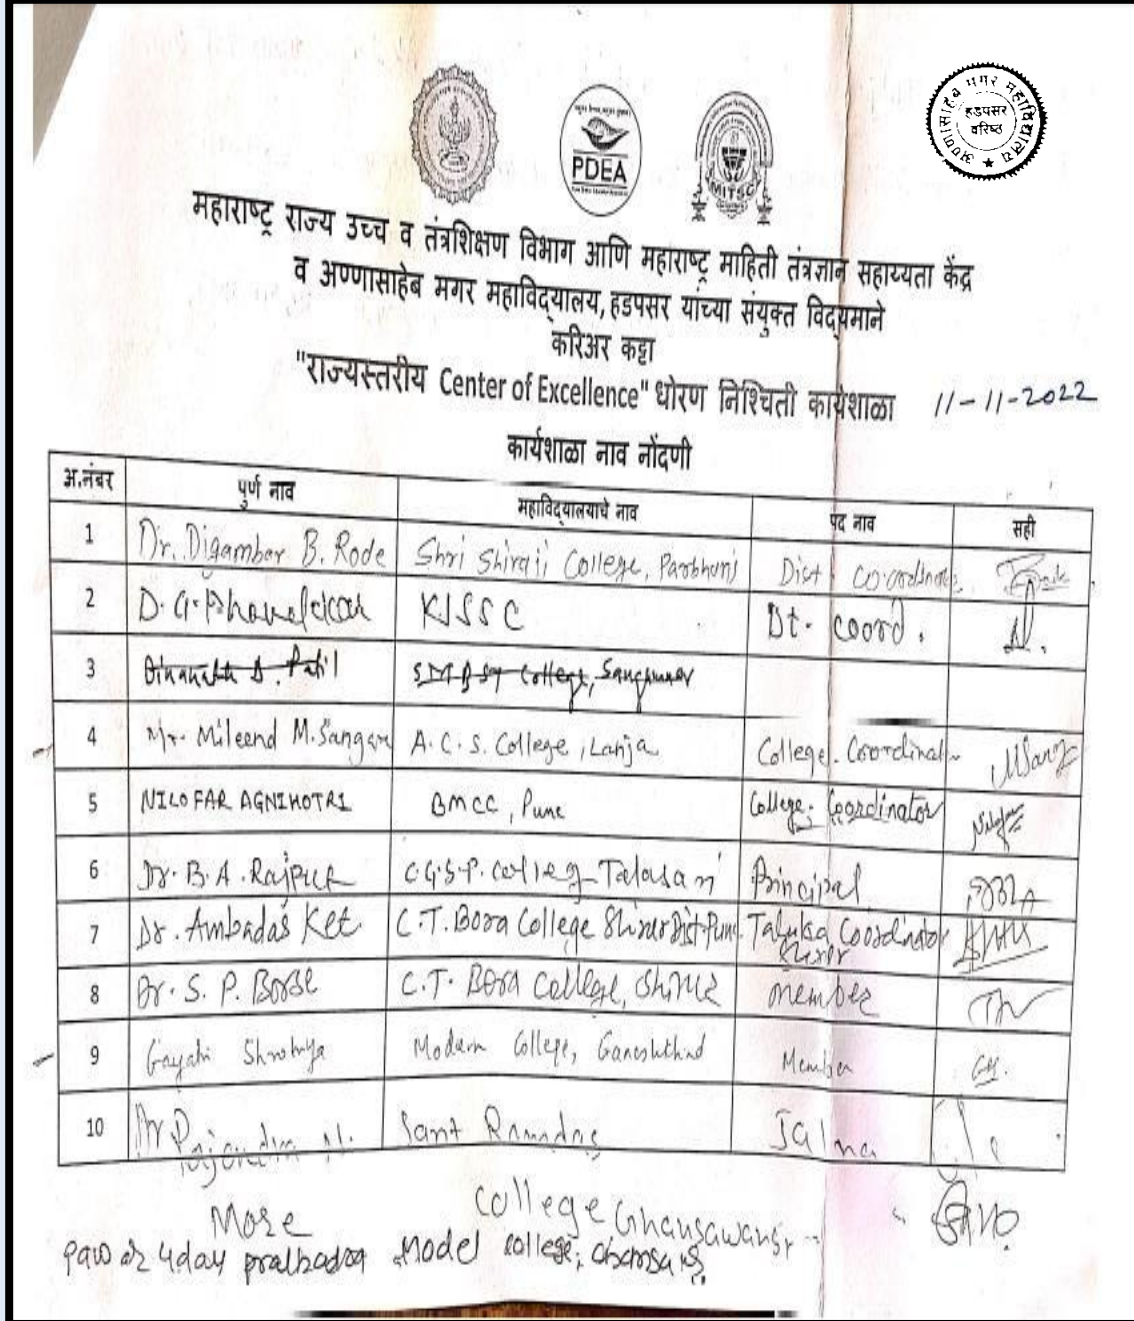 PDEA
MITSC
अण्णासाहेब मगर महाविद्यालय
हडपसर
वरिष्ठ
महाराष्ट्र राज्य उच्च व तंत्रशिक्षण विभाग आणि महाराष्ट्र माहिती तंत्रज्ञान सहाय्यता केंद्र
व अण्णासाहेब मगर महाविद्यालय, हडपसर यांच्या संयुक्त विद्यमाने
करिअर कट्टा
"राज्यस्तरीय Center of Excellence" धोरण निश्चिती कार्यशाळा 11-11-2022
कार्यशाळा नाव नोंदणी
अ.नंबर पुर्ण नाव महाविद्यालयाचे नाव पद नाव सही
1 Dr. Digambar B. Rode Shri Shivaji College, Parbhani Dist coordinator
2 D. G. KJSSC Dt. coord.
3 Patil College,
4 Mr. Mileend M. Sangare A.C.S. College, Lanja College. Coordinator
5 NILOFAR AGNIHOTRI BMCC, Pune College. Coordinator
6 Dr. B.A. Rajput C.G.S.P. College Talasari Principal
7 Dr. Ambadas Ket C.T. Bora College Shirur Dist Pune Taluka Coordinator
Shirur
8 Dr. S. P. Borse C.T. Bora College, Shirur member
9 Gayatri Modern College, Ganeshkhind Member
10 Dr Rajendra N. Sant Ramdas Jalna
More College Ghansawangi
Model college, Ghansawangi